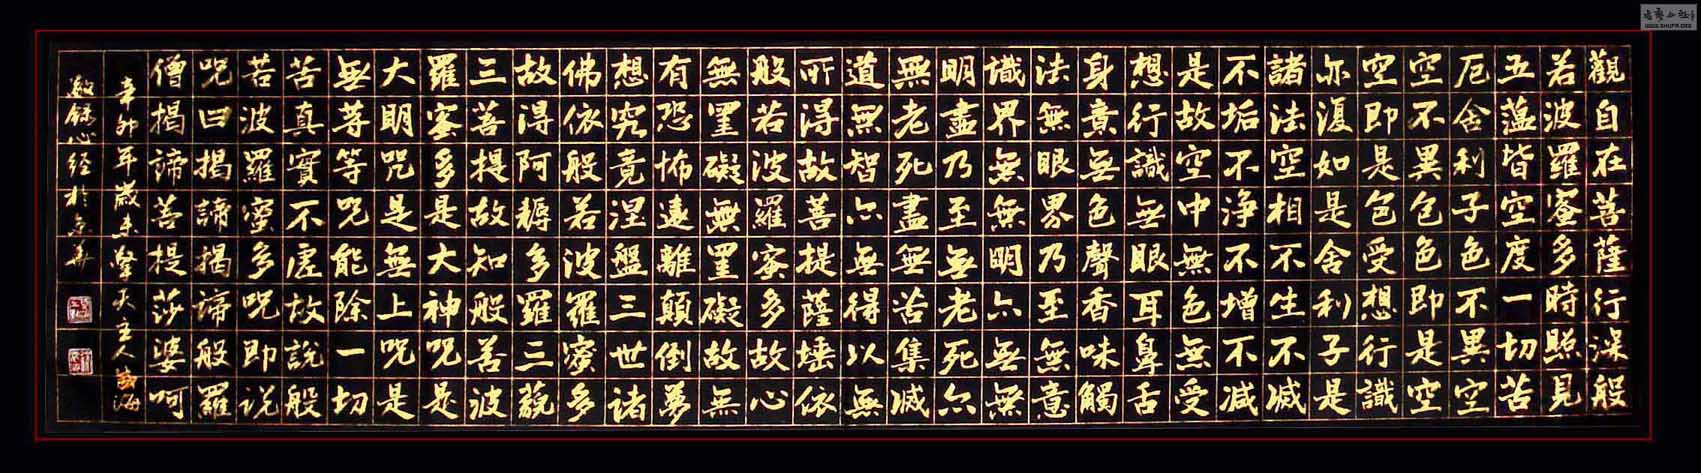 觀自在菩薩行深般
若波羅蜜多時照見
五蘊皆空度一切苦
厄舍利子色不異空
空不異色色即是空
空即是色受想行識
亦復如是舍利子是
諸法空相不生不滅
不垢不淨不增不減
是故空中無色無受
想行識無眼耳鼻舌
身意無色聲香味觸
法無眼界乃至無意
識界無無明亦無無
明盡乃至無老死亦
無老死盡無苦集滅
道無智亦無得以無
所得故菩提薩埵依
般若波羅蜜多故心
無罣礙無罣礙故無
有恐怖遠離顛倒夢
想究竟涅盤三世諸
佛依般若波羅蜜多
故得阿耨多羅三藐
三菩提故知般若波
羅蜜多是大神咒是
大明咒是無上咒是
無等等咒能除一切
苦真實不虛故說般
若波羅蜜多咒即说
咒曰揭諦揭諦般羅
僧揭諦菩提莎婆呵
辛卯年歲末擎天主人
敬錄心经於京華